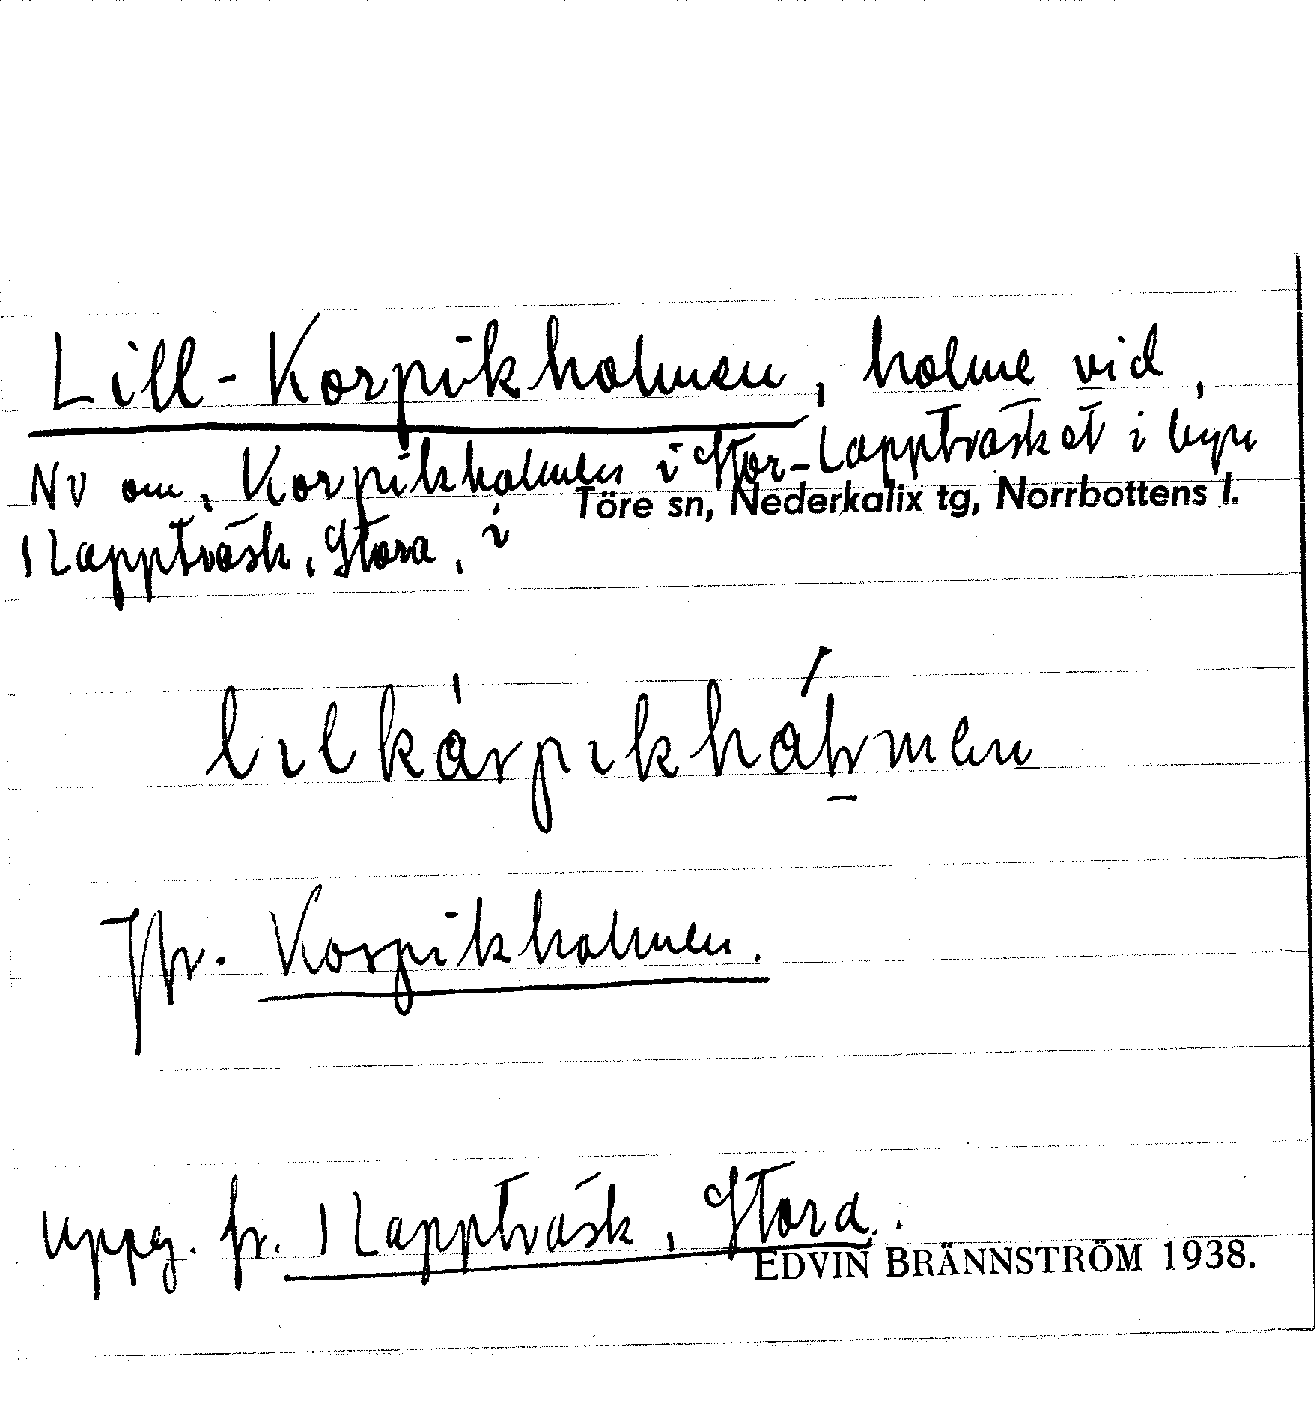 Lill-Korpikholmen, holme vid
NV om, Korpikholmen i Stor-Lappträsket i byn
Töre sn, Nederkalix tg, Norrbottens l.
1 Lappträsk, Stora, i
lılkárpıkhálmen
Jfr. Korpikholmen.
Uppg. fr. 1 Lappträsk, Stora.
EDVIN BRÄNNSTRÖM 1938.